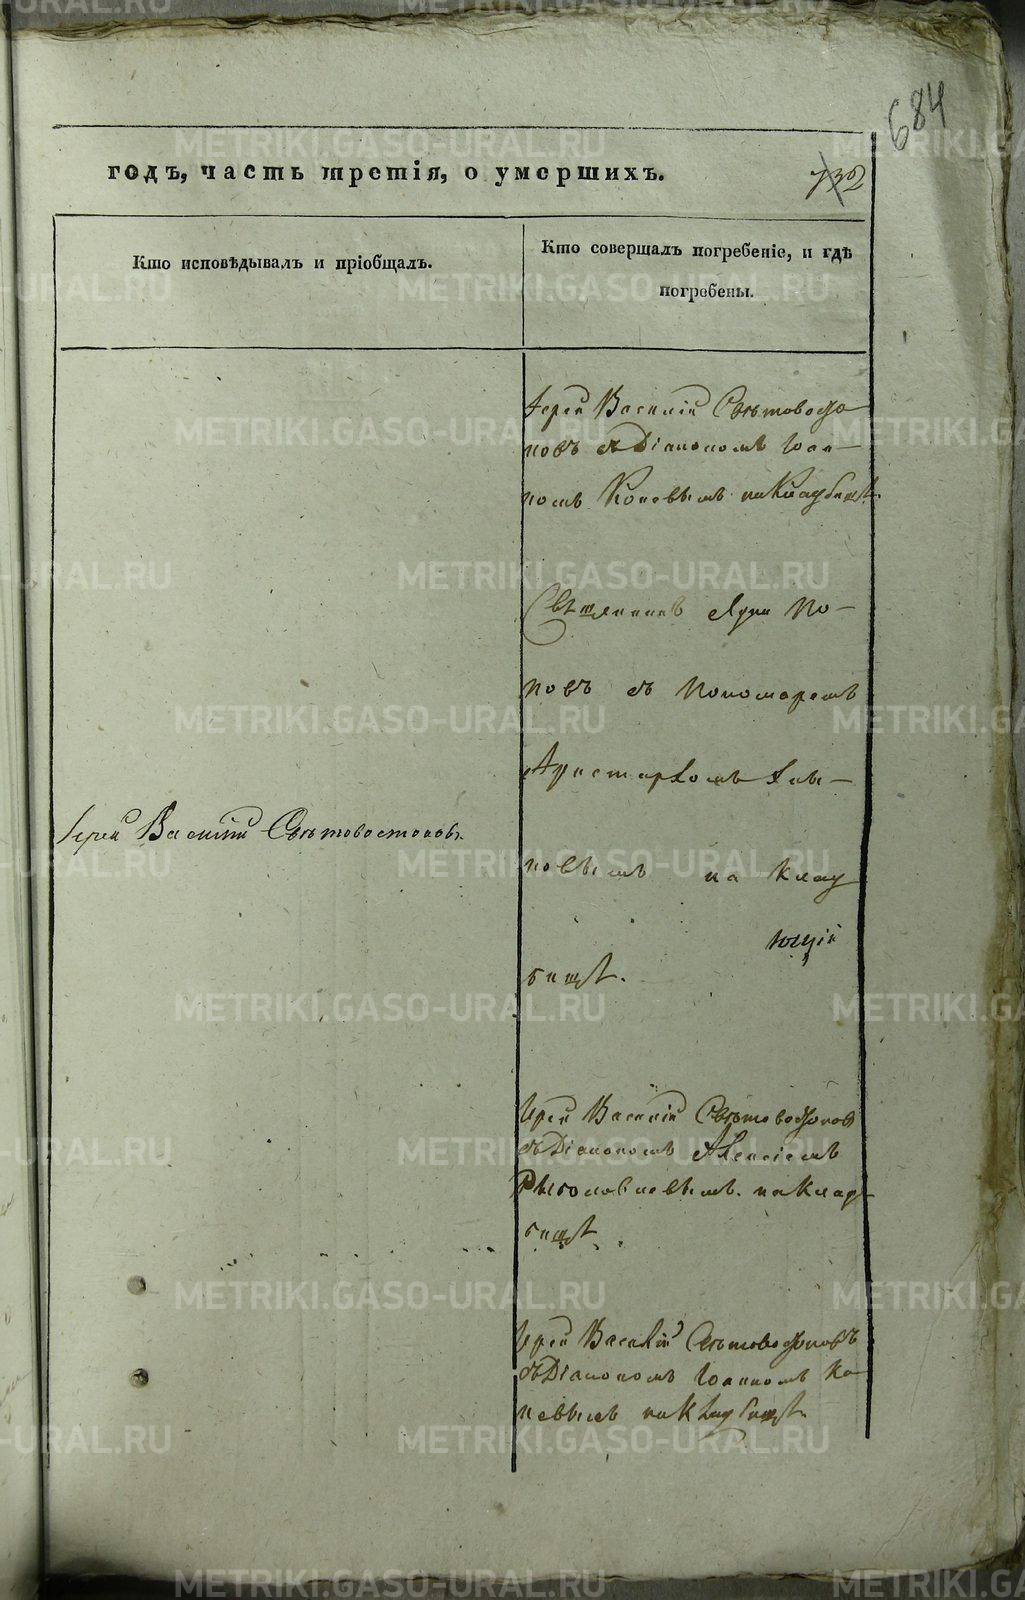 684
годъ, часть третія, о умершихъ.
732
Кто исповѣдывалъ и пріобщалъ.
Кто совершалъ погребеніе, и гдѣ
погребены.
Іерей Василій Свѣтовосто
ковъ съ Діакономъ Іоан-
номъ Коневымъ на Кладбищѣ.
Священникъ Луки По-
повъ съ Пономаремъ
Аристархомъ
Іерей Василій Свѣтовостоковъ.
новымъ на Клад
ющій
бищѣ.
Іерей Василій Свѣтовостоковъ
съ Діакономъ Алексіемъ
на Клад-
бищѣ.
Іерей Василій Свѣтовостоковъ
съ Діакономъ Іоанномъ Ко
невымъ на Кладбищѣ.
METRIKI.GASO-URAL.RU